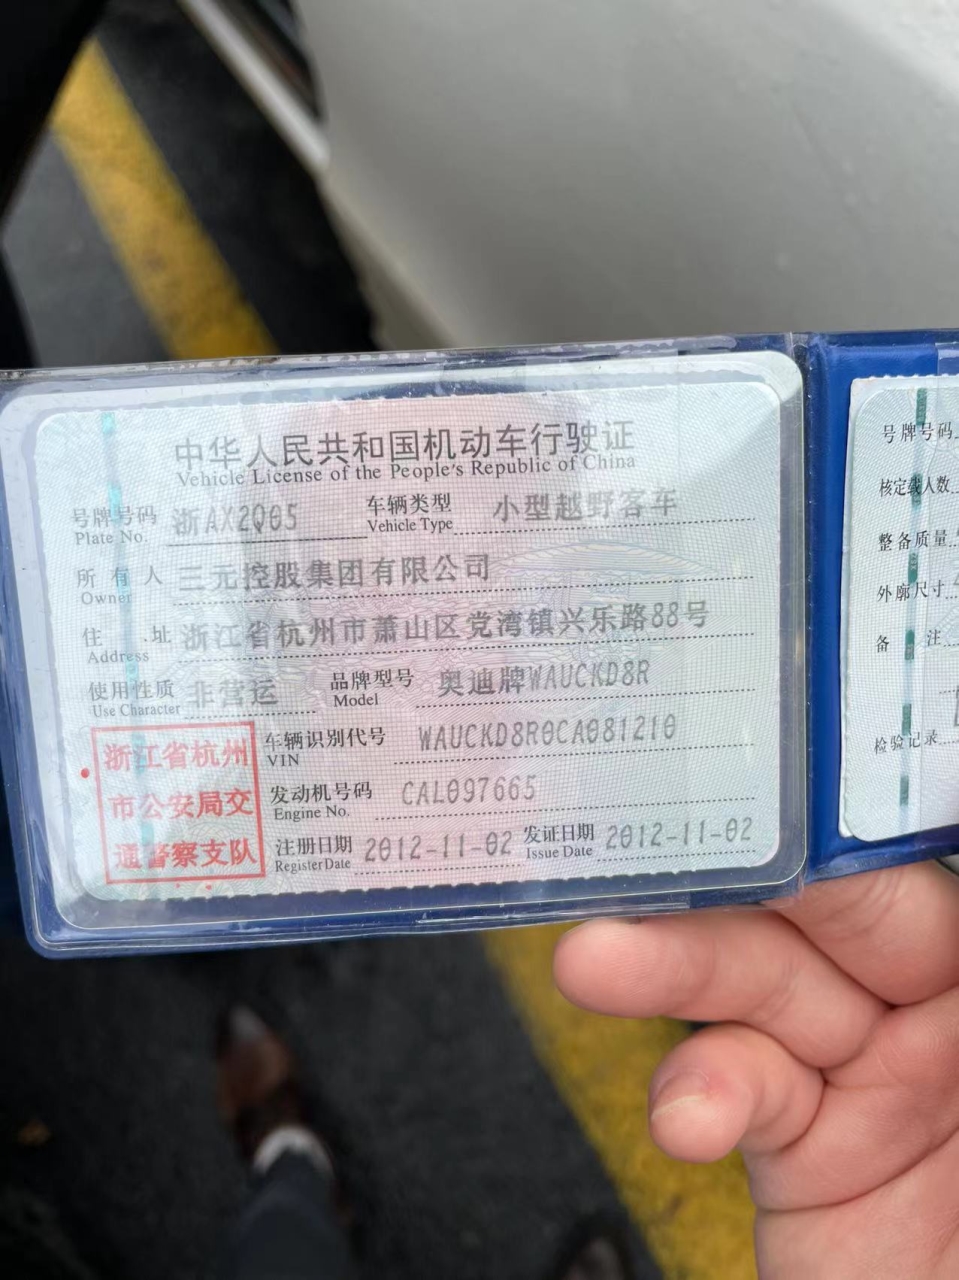 中华人民共和国机动车行驶证
Vehicle License of the People's Republic of China
号牌号码 浙AX2Q05 车辆类型 小型越野客车
Plate No. Vehicle Type
所有人 三元控股集团有限公司
Owner
住址 浙江省杭州市萧山区党湾镇兴乐路88号
Address
使用性质 非营运 品牌型号 奥迪牌WAUCKD8R
Use Character Model
浙江省杭州
市公安局交
通警察支队
车辆识别代号 WAUCKD8R0CA081210
VIN
发动机号码 CAL097665
Engine No.
注册日期 2012-11-02 发证日期 2012-11-02
Register Date Issue Date
号牌号码
核定载人数
整备质量
外廓尺寸
备注
检验记录